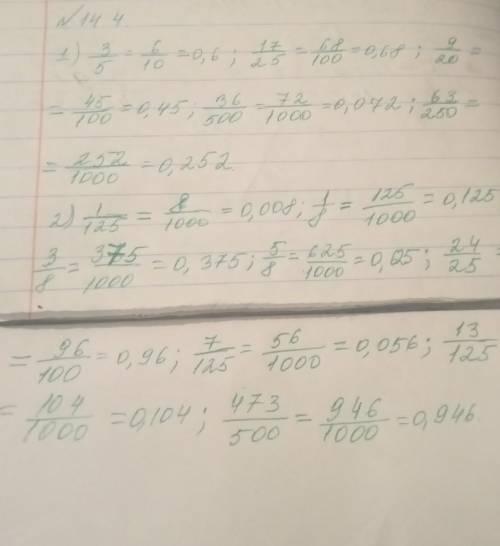 № 14 4.
1) 3/5 = 6/10 = 0,6; 17/25 = 68/100 = 0,68; 9/20 =
= 45/100 = 0,45; 36/500 = 72/1000 = 0,072; 63/250 =
= 252/1000 = 0,252.
2) 1/125 = 8/1000 = 0,008; 1/8 = 125/1000 = 0,125
3/8 = 375/1000 = 0,375; 5/8 = 625/1000 = 0,625; 24/25 =
= 96/100 = 0,96; 7/125 = 56/1000 = 0,056; 13/125
= 104/1000 = 0,104; 473/500 = 946/1000 = 0,946.